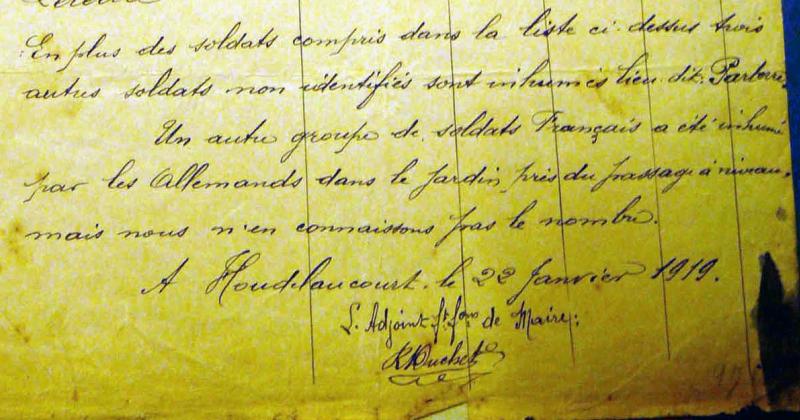 En plus des soldats compris dans la liste ci-dessus trois
autres soldats non identifiés sont inhumés lieu-dit:
Un autre groupe de soldats Français a été inhumé
par les Allemands dans le jardin près du passage à niveau,
mais nous n'en connaissons pas le nombre.
A Houdelaucourt. le 22 Janvier 1919.
L'Adjoint ft. fons de Maire: